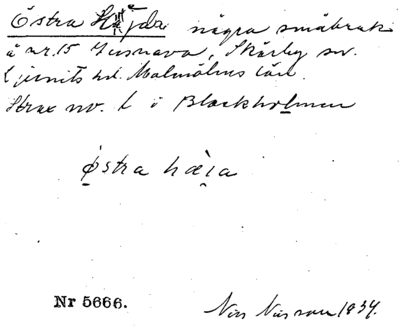 Östra Höjda några småbruk
å nr. 15 Gussnava, Skårby sn.
Ljunits hd. Malmöhus län.
Strax nv. t i Bleckholmen
östra hæia
Nr 5666.
Nils Nilsson 1934.